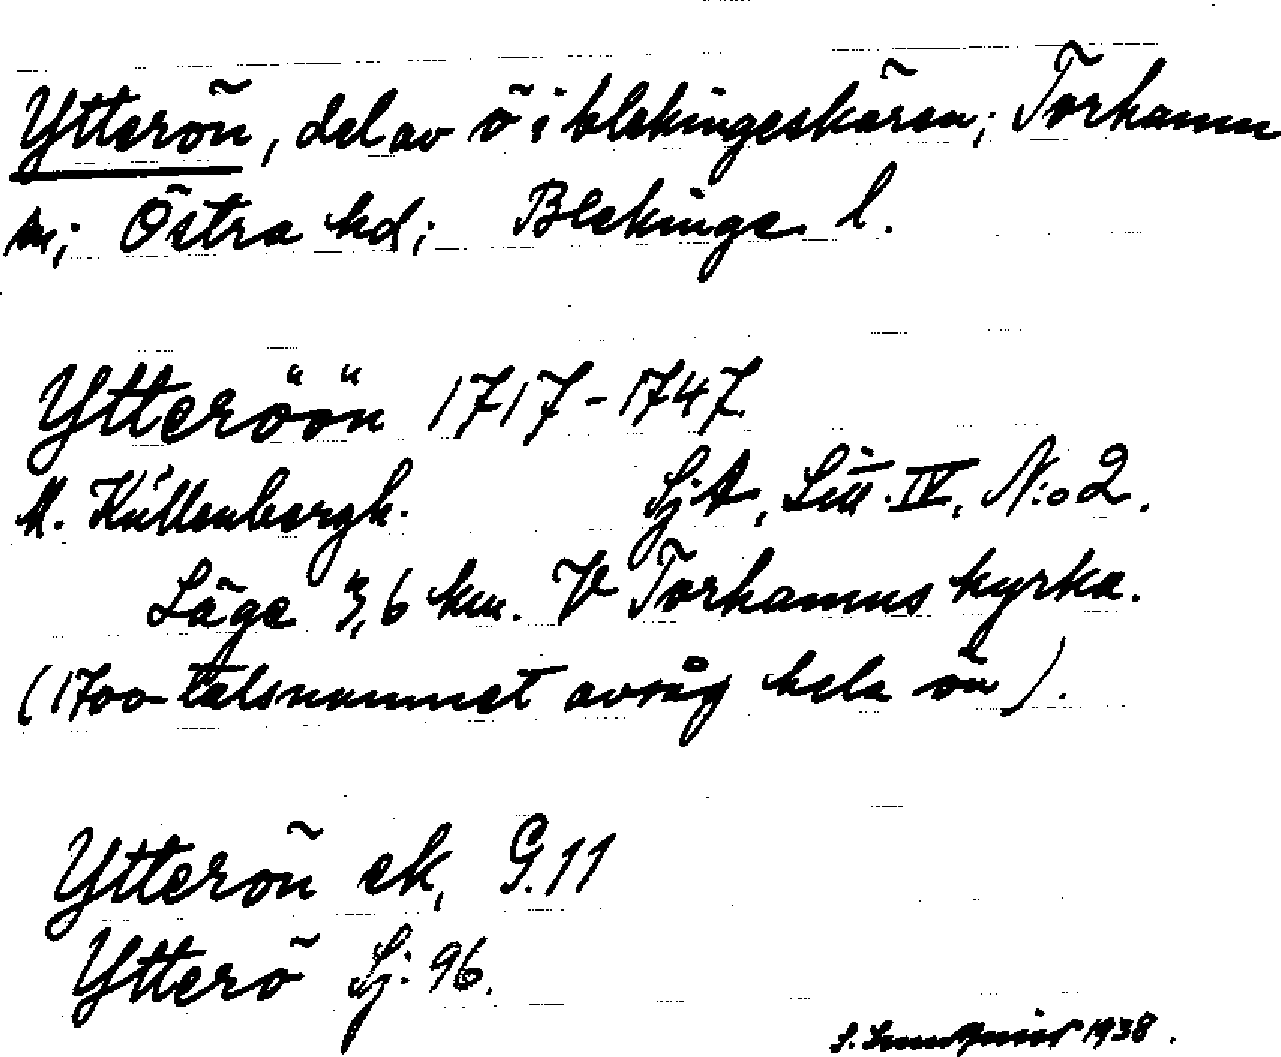 Ytterön, del av ö i blekingeskären; Torhamn
sn; Östra hd; Blekinge l.
Ytteröön 1717-1747
M. Küllenbergh. SjA, Litt. IV, N:o 2.
Läge 3,6 km. V Torhamns kyrka.
(1700-talsnamnet avsåg hela ön).
Ytterön ek, G.11
Ytterö Sj. 96.
1938.